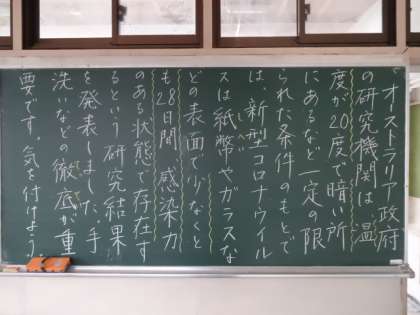 オーストラリア政府
の研究機関は、温
度が20度で暗い所
にあるなど一定の限
られた条件のもとで
は、新型コロナウイル
スは紙幣やガラスな
どの表面で少なくと
も28日間、感染力
のある状態で存在す
るという研究結果
を発表しました。手
洗いなどの徹底が重
要です。気を付けよう。